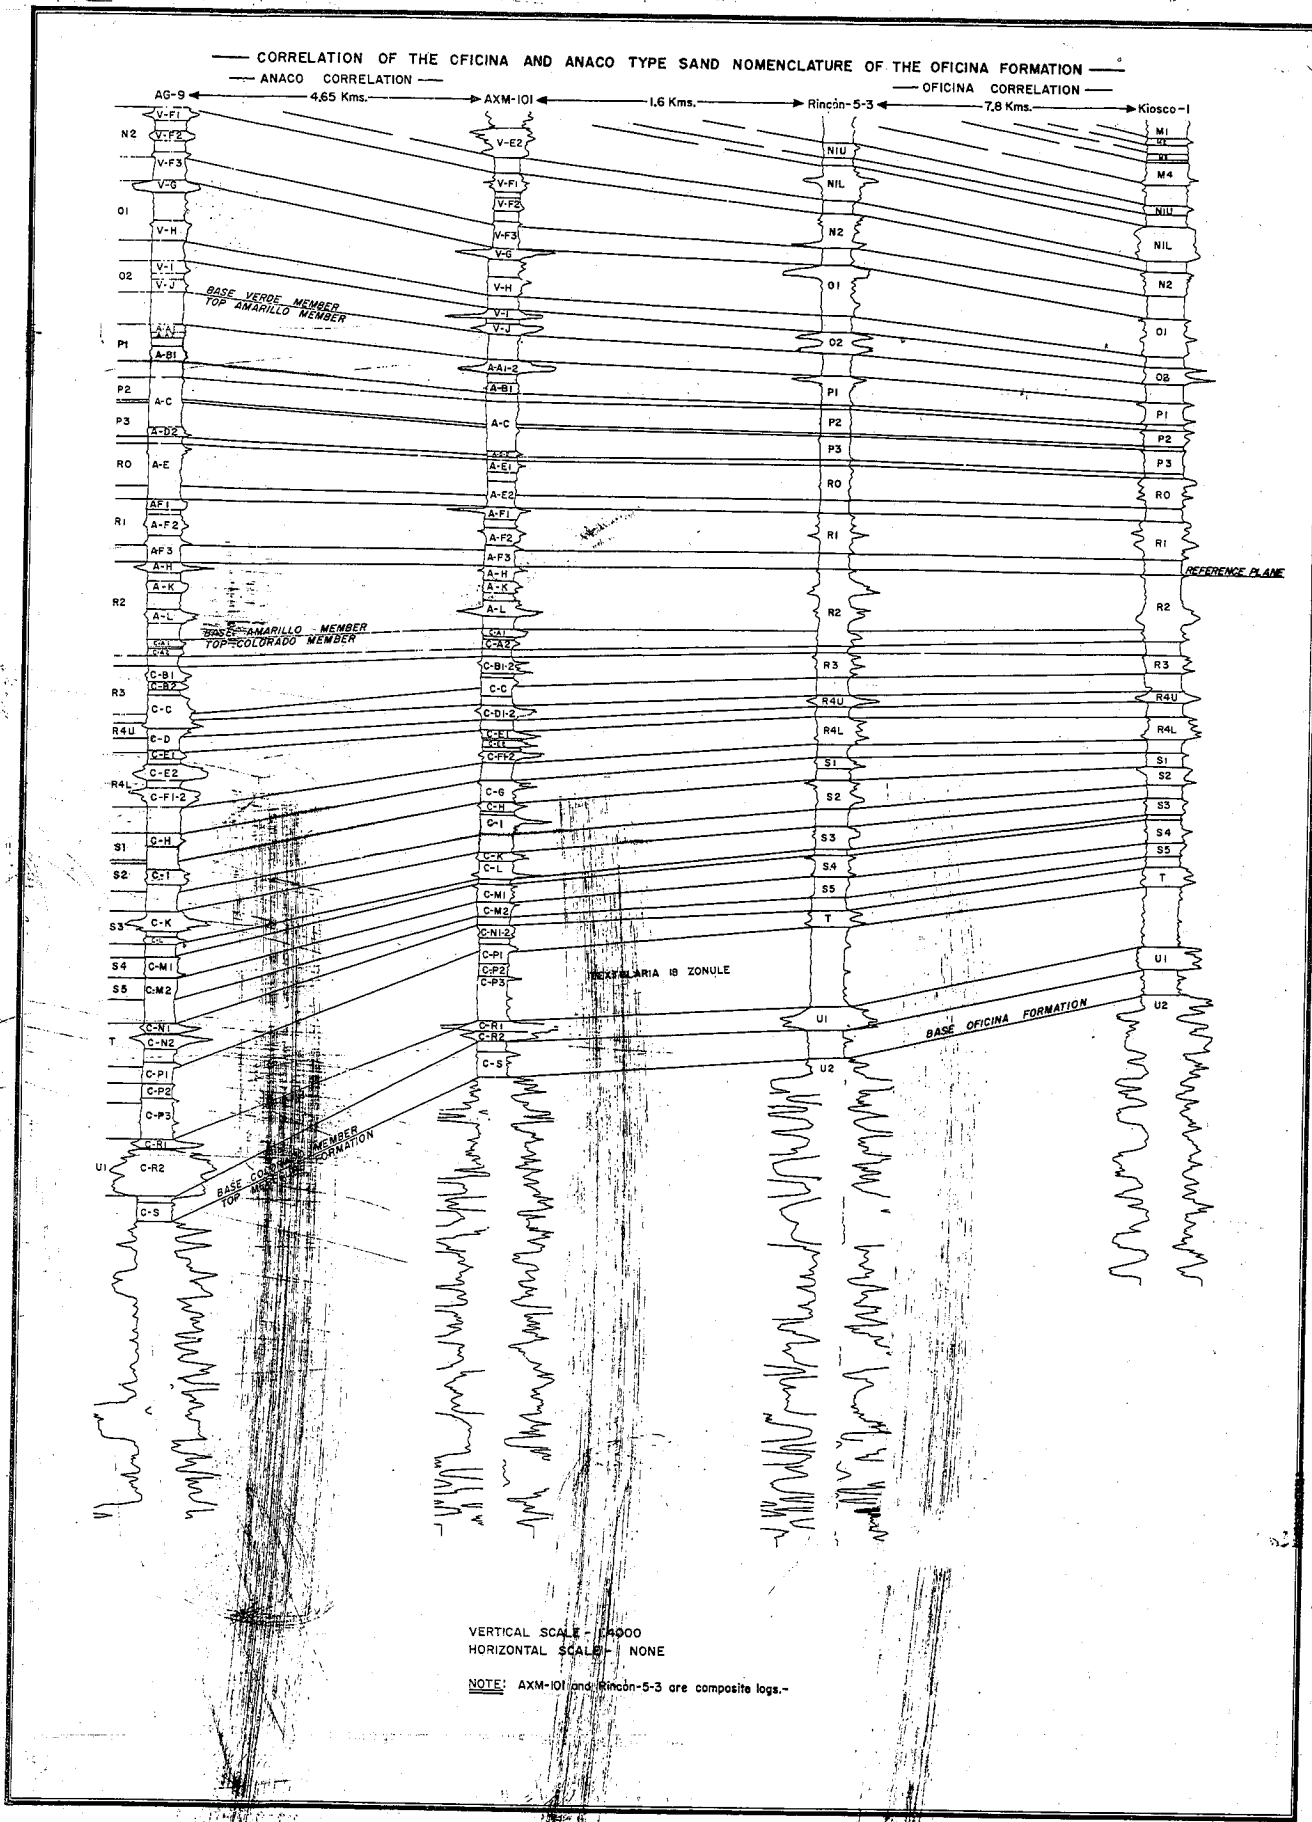 CORRELATION OF THE OFICINA AND ANACO TYPE SAND NOMENCLATURE OF THE OFICINA FORMATION
ANACO CORRELATION
OFICINA CORRELATION
AG-9
4.65 Kms.
AXM-101
1.6 Kms.
Rincón-5-3
7.8 Kms.
Kiosco-1
N2
O1
O2
P1
P2
P3
RO
R1
R2
R3
R4U
R4L
S1
S2
S3
S4
S5
T
U1
V-F1
V-F2
V-F3
V-G
V-H
V-I
V-J
A-B1
A-C
A-D2
A-E
AF1
A-F2
AF3
A-H
A-K
A-L
C-B1
C-B2
C-C
C-D
C-E1
C-E2
C-F1-2
C-H
C-I
C-K
C-L
C-M1
C-M2
C-N1
C-N2
C-P1
C-P2
C-P3
C-R1
C-R2
C-S
BASE VERDE MEMBER
TOP AMARILLO MEMBER
BASE AMARILLO MEMBER
TOP COLORADO MEMBER
BASE COLORADO MEMBER
TOP FORMATION
V-E2
V-F1
V-F2
V-F3
V-G
V-H
V-I
V-J
A-A1-2
A-B1
A-C
A-E1
A-E2
A-F1
A-F2
A-F3
A-H
A-K
A-L
C-A1
C-A2
C-B1-2
C-C
C-D1-2
C-E1
C-F1-2
C-G
C-H
C-I
C-K
C-L
C-M1
C-M2
C-N1-2
C-P1
C-P2
C-P3
C-R1
C-R2
C-S
18 ZONULE
N1U
N1L
N2
O1
O2
P1
P2
P3
RO
R1
R2
R3
R4U
R4L
S1
S2
S3
S4
S5
T
U1
U2
BASE OFICINA FORMATION
M1
M4
N1U
N1L
N2
O1
O2
P1
P2
P3
RO
R1
REFERENCE PLANE
R2
R3
R4U
R4L
S1
S2
S3
S4
S5
T
U1
U2
VERTICAL SCALE - 1:4000
HORIZONTAL SCALE - NONE
NOTE: AXM-101 and Rincón-5-3 are composite logs.-